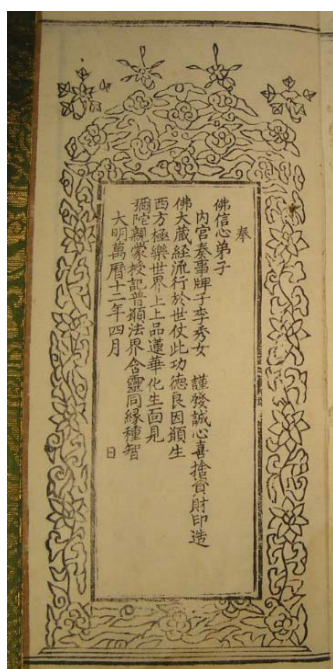 奉
佛信心弟子
內宮奏事牌子李秀女　謹發誠心喜捨資財印造
佛大藏經流行於世仗此功德良因願生
西方極樂世界上上品蓮華化生面見
彌陀親蒙授記普願法界含靈同緣種智
大明萬曆十二年四月　日